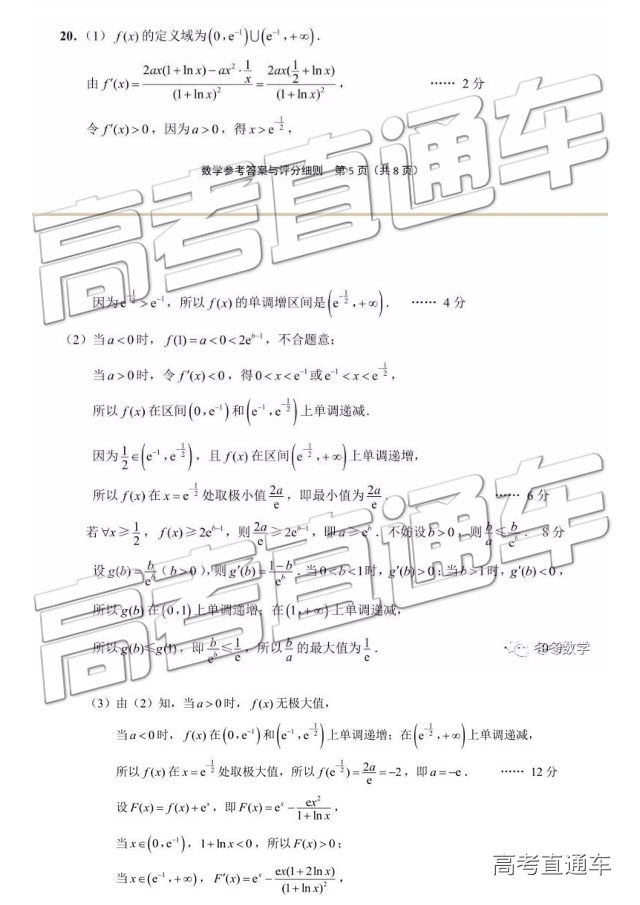 20.（1）f(x)的定义域为(0,e⁻¹)∪(e⁻¹,+∞).
由f′(x)=[2ax(1+ln x)−ax²·1/x]/(1+ln x)²=2ax(1/2+ln x)/(1+ln x)²， …… 2分
令f′(x)>0，因为a>0，得x>e^(−1/2)，
数学参考答案与评分细则 第5页（共8页）
因为e^(−1/2)>e⁻¹，所以f(x)的单调增区间是(e^(−1/2),+∞). …… 4分
（2）当a<0时，f(1)=a<0<2e^(b−1)，不合题意；
当a>0时，令f′(x)<0，得0<x<e⁻¹或e⁻¹<x<e^(−1/2)，
所以f(x)在区间(0,e⁻¹)和(e⁻¹,e^(−1/2))上单调递减.
因为1/2∈(e⁻¹,e^(−1/2))，且f(x)在区间(e^(−1/2),+∞)上单调递增，
所以f(x)在x=e^(−1/2)处取极小值2a/e，即最小值为2a/e. …… 6分
若∀x≥1/2，f(x)≥2e^(b−1)，则2a/e≥2e^(b−1)，即a≥e^b. 不妨设b>0，则b/a≤b/e^b. 8分
设g(b)=b/e^b（b>0），则g′(b)=(1−b)/e^b. 当0<b<1时，g′(b)>0；当b>1时，g′(b)<0，
所以g(b)在(0,1)上单调递增；在(1,+∞)上单调递减，
所以g(b)≤g(1)，即b/e^b≤1/e，所以b/a的最大值为1/e.
（3）由（2）知，当a>0时，f(x)无极大值，
当a<0时，f(x)在(0,e⁻¹)和(e⁻¹,e^(−1/2))上单调递增；在(e^(−1/2),+∞)上单调递减，
所以f(x)在x=e^(−1/2)处取极大值，所以f(e^(−1/2))=2a/e=−2，即a=−e. …… 12分
设F(x)=f(x)+eˣ，即F(x)=eˣ−ex²/(1+ln x)，
当x∈(0,e⁻¹)，1+ln x<0，所以F(x)>0；
当x∈(e⁻¹,+∞)，F′(x)=eˣ−ex(1+2ln x)/(1+ln x)²，
高考直通车
高考直通车
高考直通车